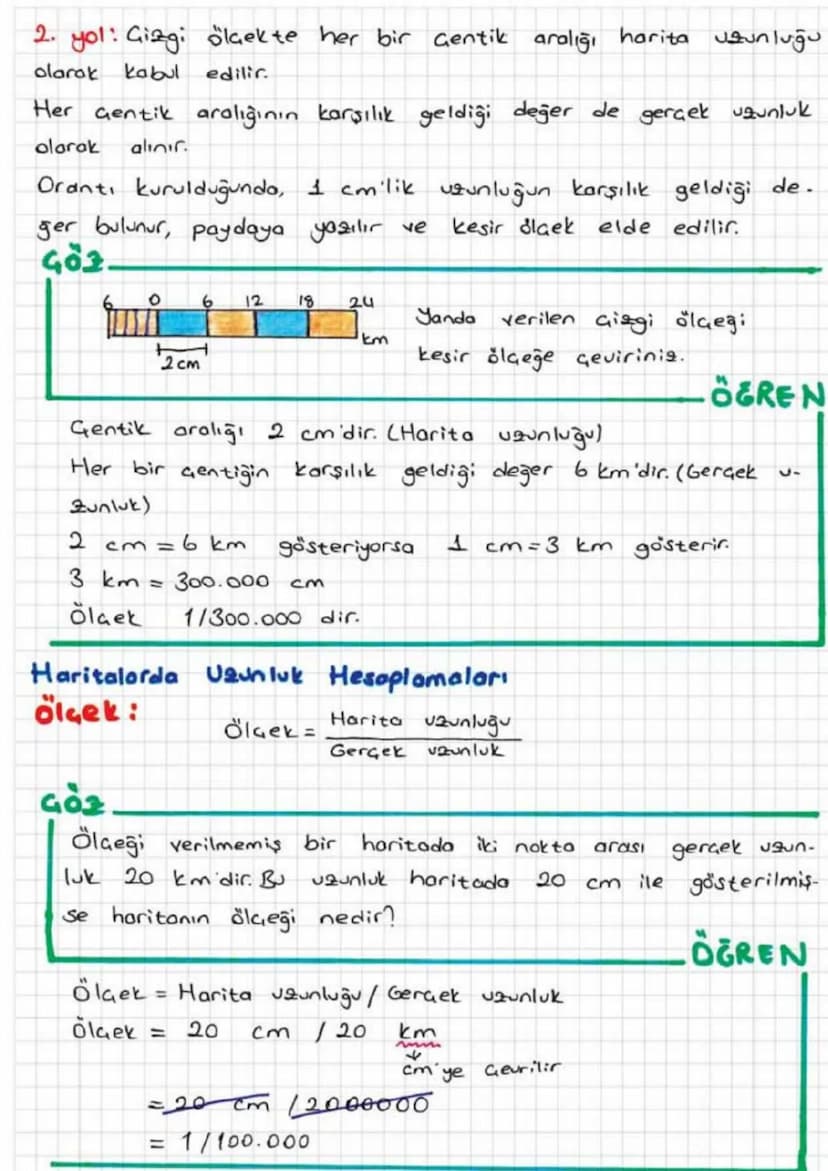 2. yol: Çizgi ölçekte her bir çentik aralığı harita uzunluğu
olarak kabul edilir.
Her çentik aralığının karşılık geldiği değer de gerçek uzunluk
olarak alınır.
Orantı kurulduğunda, 1 cm'lik uzunluğun karşılık geldiği de-
ğer bulunur, paydaya yazılır ve kesir ölçek elde edilir.
ÇÖZ
6 0 6 12 18 24
km
2 cm
Yanda verilen çizgi ölçeği
kesir ölçeğe çeviriniz.
ÖĞREN
Çentik aralığı 2 cm'dir. (Harita uzunluğu)
Her bir çentiğin karşılık geldiği değer 6 km'dir. (Gerçek u-
zunluk)
2 cm = 6 km gösteriyorsa 1 cm = 3 km gösterir.
3 km = 300.000 cm
Ölçek 1/300.000 dir.
Haritalarda Uzunluk Hesaplamaları
Ölçek:
Ölçek = Harita uzunluğu
Gerçek uzunluk
ÇÖZ
Ölçeği verilmemiş bir haritada iki nokta arası gerçek uzun-
luk 20 km'dir. Bu uzunluk haritada 20 cm ile gösterilmiş-
se haritanın ölçeği nedir?
ÖĞREN
Ölçek = Harita uzunluğu / Gerçek uzunluk
Ölçek = 20 cm / 20 km
cm'ye çevrilir
= 20 cm / 2000000
= 1/100.000